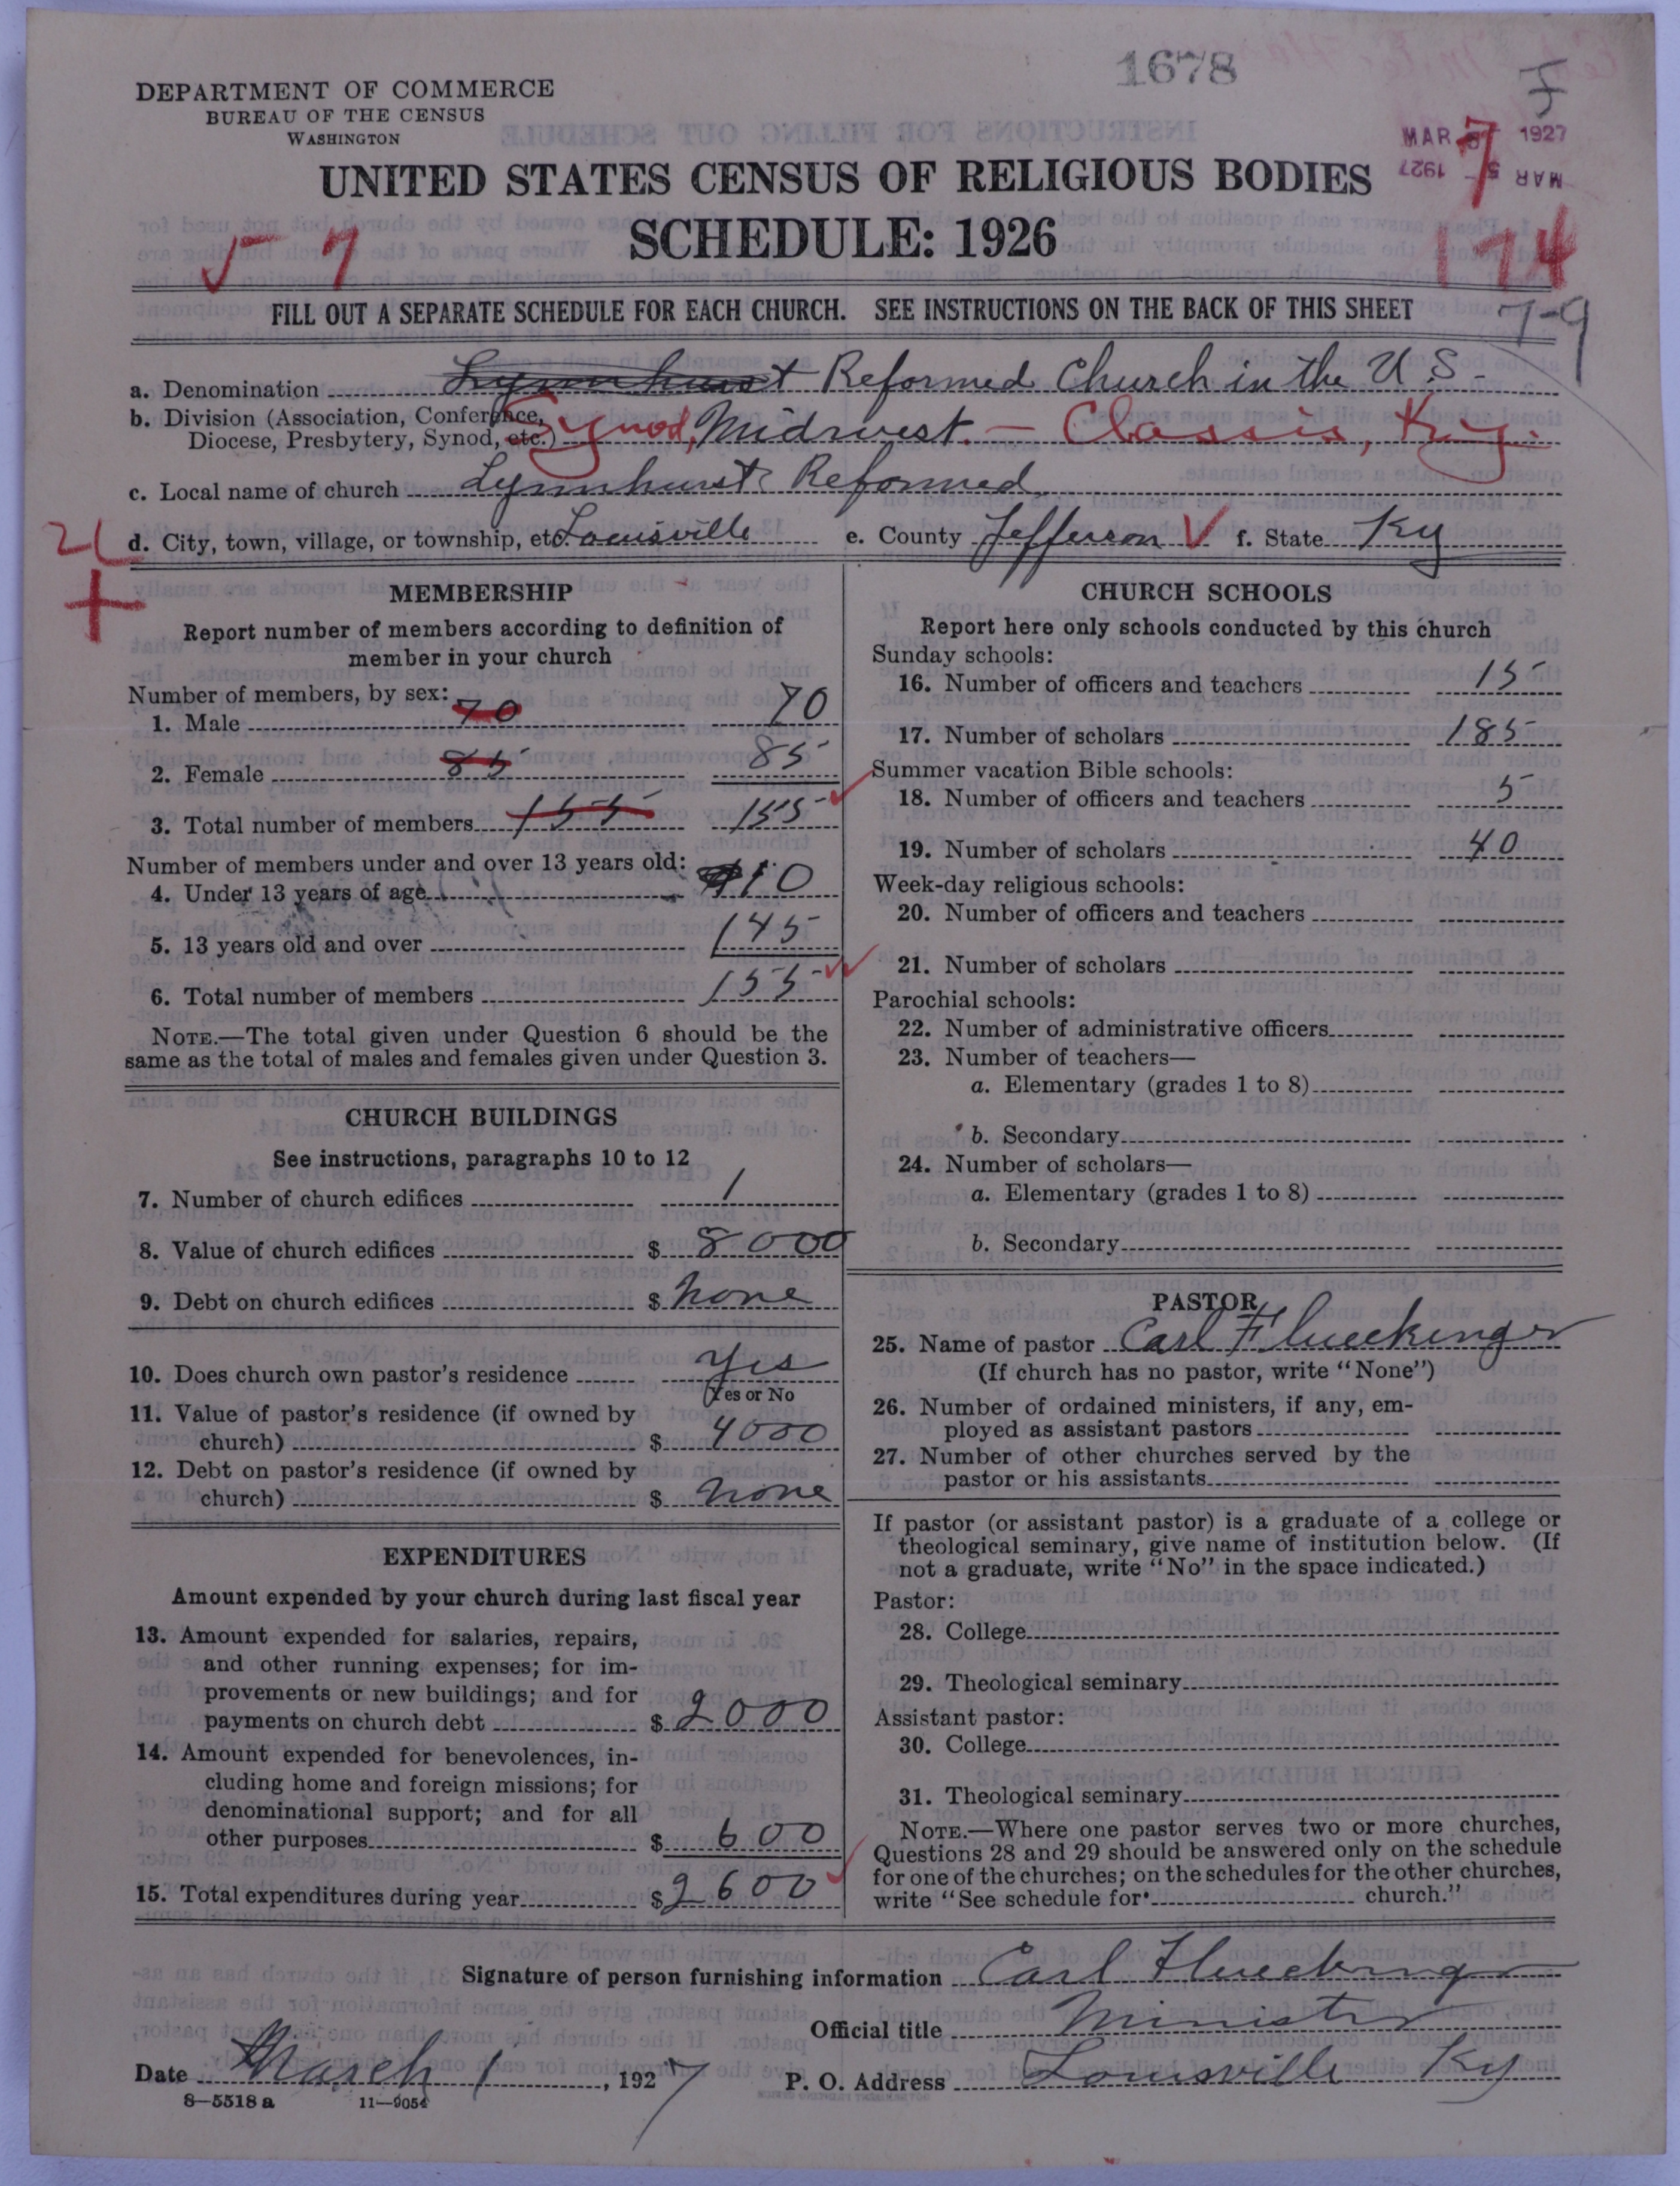 1678
DEPARTMENT OF COMMERCE
BUREAU OF THE CENSUS
WASHINGTON
MAR 5 1927
MAR 5 - 1927
7
UNITED STATES CENSUS OF RELIGIOUS BODIES
SCHEDULE: 1926
5 7
174
FILL OUT A SEPARATE SCHEDULE FOR EACH CHURCH. SEE INSTRUCTIONS ON THE BACK OF THIS SHEET
7-9
a. Denomination Lynnhurst Reformed Church in the U.S.
b. Division (Association, Conference,
Diocese, Presbytery, Synod, etc.) Synod, Midwest. — Classis, Ky.
c. Local name of church Lynnhurst Reformed
d. City, town, village, or township, etc. Louisville e. County Jefferson f. State Ky
MEMBERSHIP
Report number of members according to definition of
member in your church
Number of members, by sex:
1. Male 70 70
2. Female 85 85
3. Total number of members 155 155
Number of members under and over 13 years old:
4. Under 13 years of age 10
5. 13 years old and over 145
6. Total number of members 155
NOTE.—The total given under Question 6 should be the
same as the total of males and females given under Question 3.
CHURCH BUILDINGS
See instructions, paragraphs 10 to 12
7. Number of church edifices 1
8. Value of church edifices $ 8000
9. Debt on church edifices $ none
10. Does church own pastor's residence yes
(Yes or No
11. Value of pastor's residence (if owned by
church) $ 4000
12. Debt on pastor's residence (if owned by
church) $ none
EXPENDITURES
Amount expended by your church during last fiscal year
13. Amount expended for salaries, repairs,
and other running expenses; for im-
provements or new buildings; and for
payments on church debt $ 2000
14. Amount expended for benevolences, in-
cluding home and foreign missions; for
denominational support; and for all
other purposes $ 600
15. Total expenditures during year $ 2600
CHURCH SCHOOLS
Report here only schools conducted by this church
Sunday schools:
16. Number of officers and teachers 15
17. Number of scholars 185
Summer vacation Bible schools:
18. Number of officers and teachers 5
19. Number of scholars 40
Week-day religious schools:
20. Number of officers and teachers
21. Number of scholars
Parochial schools:
22. Number of administrative officers
23. Number of teachers—
a. Elementary (grades 1 to 8)
b. Secondary
24. Number of scholars—
a. Elementary (grades 1 to 8)
b. Secondary
PASTOR
25. Name of pastor Carl Flueckinger
(If church has no pastor, write "None")
26. Number of ordained ministers, if any, em-
ployed as assistant pastors
27. Number of other churches served by the
pastor or his assistants
If pastor (or assistant pastor) is a graduate of a college or
theological seminary, give name of institution below. (If
not a graduate, write "No" in the space indicated.)
Pastor:
28. College
29. Theological seminary
Assistant pastor:
30. College
31. Theological seminary
NOTE.—Where one pastor serves two or more churches,
Questions 28 and 29 should be answered only on the schedule
for one of the churches; on the schedules for the other churches,
write "See schedule for church."
Signature of person furnishing information Carl Flueckinger
Official title Minister
Date March 1, 1927 P. O. Address Louisville Ky
8—5518 a 11—9054